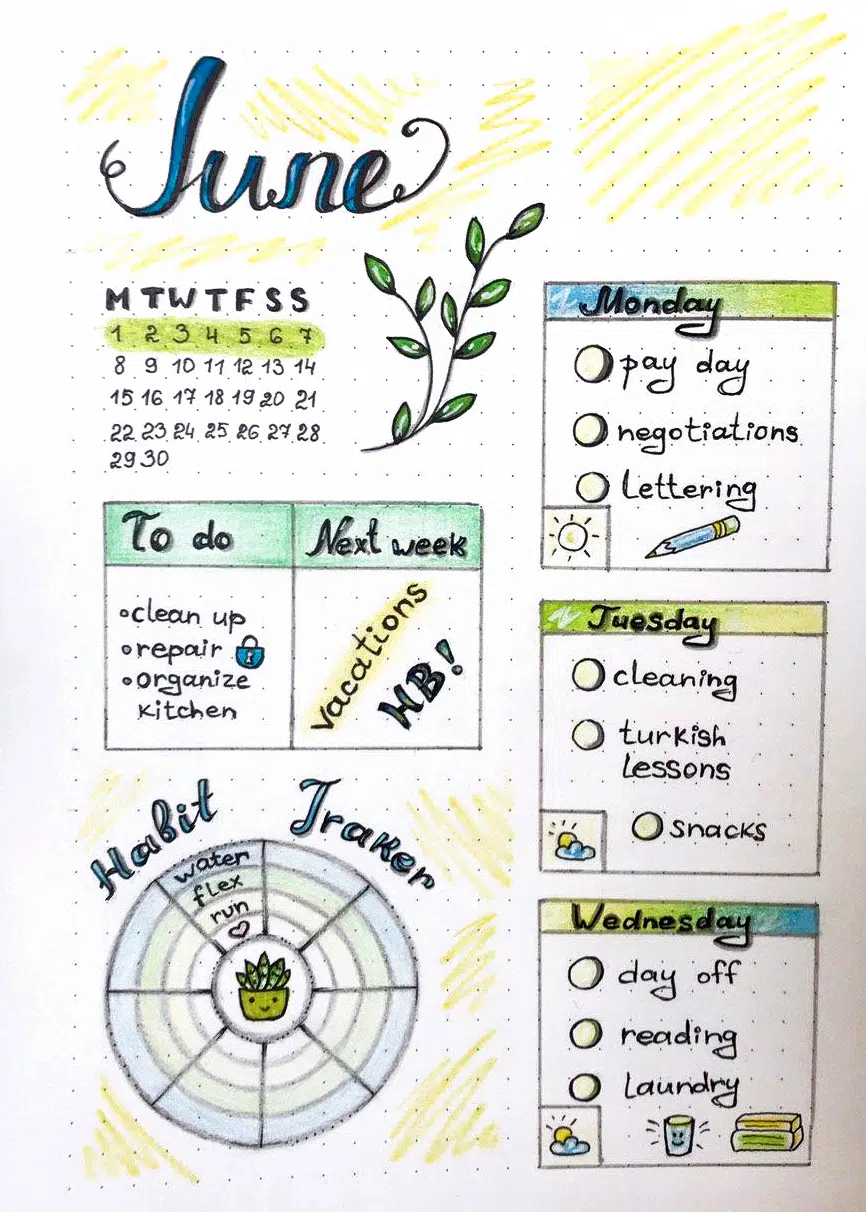 June
M T W T F S S
1 2 3 4 5 6 7
8 9 10 11 12 13 14
15 16 17 18 19 20 21
22 23 24 25 26 27 28
29 30
To do
•clean up
•repair
•organize
kitchen
Next week
vacations
HB!
Habit Traker
water
flex
run
Monday
pay day
negotiations
lettering
Tuesday
cleaning
turkish
lessons
snacks
Wednesday
day off
reading
laundry